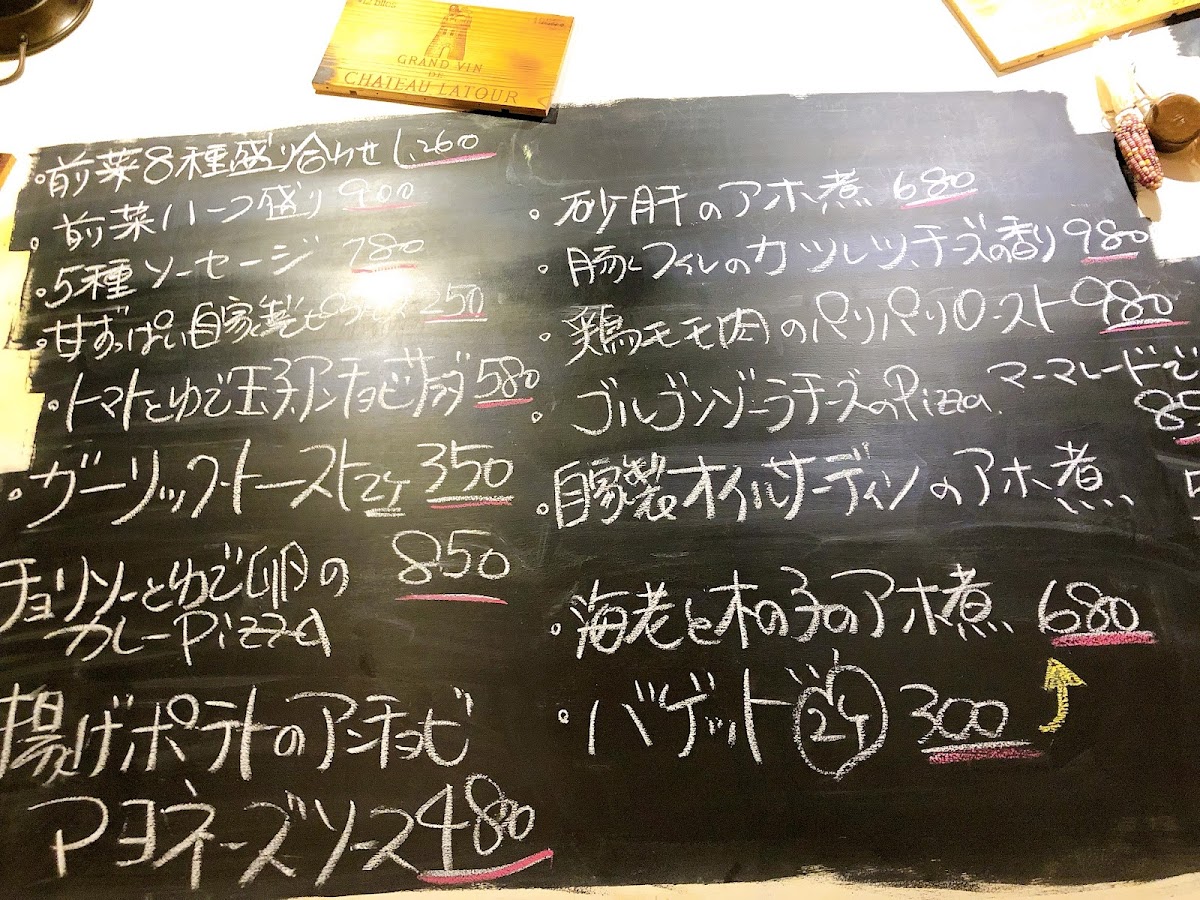 GRAND VIN
DE
CHATEAU LATOUR
・前菜8種盛り合わせ 1,260
・前菜ハーフ盛り 900
・5種ソーセージ 780
・甘ずっぱい自家製 250
・トマトとゆで玉子アンチョビサラダ 580
・ガーリックトースト2ケ 350
チョリソーとゆで卵の 850
カレーPizza
揚げポテトのアンチョビ
マヨネーズソース 480
・砂肝のアホ煮 680
・豚ヒレのカツレツ、チーズの香り 980
・鶏モモ肉のパリパリロースト 980
・ゴルゴンゾーラチーズのPizza. マーマレードで
・自家製オイルサーディンのアホ煮
・海老と木の子のアホ煮 680
・バゲット 2ケ 300